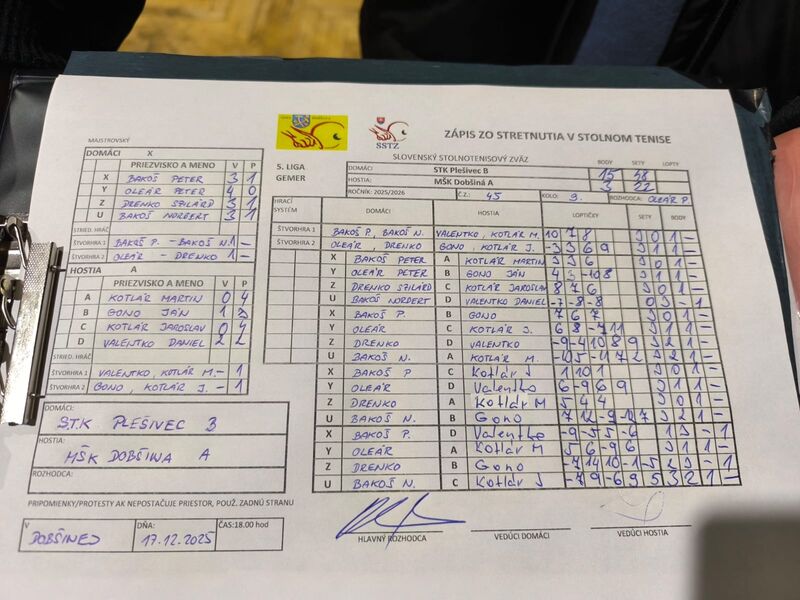 ZÁPIS ZO STRETNUTIA V STOLNOM TENISE
SSTZ
SLOVENSKÝ STOLNOTENISOVÝ ZVÄZ
5. LIGA
GEMER
DOMÁCI: STK Plešivec B
HOSTIA: MŠK Dobšiná A
ROČNÍK: 2025/2026 Č.Z.: 45 KOLO: 9. ROZHODCA: OLEÁR P.
BODY SETY LOPTY
15 48
3 22
MAJSTROVSKÝ
DOMÁCI X
PRIEZVISKO A MENO V P
X BAKOŠ PETER 3 1
Y OLEÁR PETER 4 0
Z DRENKO SZILÁRD 3 1
U BAKOŠ NORBERT 3 1
STRIED. HRÁČ
ŠTVORHRA 1 BAKOŠ P. - BAKOŠ N. 1 -
ŠTVORHRA 2 OLEÁR - DRENKO 1 -
HOSTIA A
PRIEZVISKO A MENO V P
A KOTLÁR MARTIN 0 4
B GONO JÁN 1 3
C KOTLÁR JAROSLAV 0 4
D VALENTKO DANIEL 2 2
STRIED. HRÁČ
ŠTVORHRA 1 VALENTKO, KOTLÁR M. - 1
ŠTVORHRA 2 GONO, KOTLÁR J. - 1
DOMÁCI:
STK PLEŠIVEC B
HOSTIA:
MŠK DOBŠINA A
ROZHODCA:
PRIPOMIENKY/PROTESTY AK NEPOSTAČUJE PRIESTOR, POUŽ. ZADNÚ STRANU
V DOBŠINEJ
DŇA: 17.12.2025
ČAS:18.00 hod
HRACÍ SYSTÉM DOMÁCI HOSTIA LOPTIČKY SETY BODY
ŠTVORHRA 1 BAKOŠ P., BAKOŠ N. VALENTKO, KOTLÁR M. 10 7 8 3 0 1 -
ŠTVORHRA 2 OLEÁR, DRENKO GONO, KOTLÁR J. -3 3 6 9 3 1 1 -
X BAKOŠ PETER A KOTLÁR MARTIN 3 3 6 3 0 1 -
Y OLEÁR PETER B GONO JÁN 4 3 -10 8 3 1 1 -
Z DRENKO SZILÁRD C KOTLÁR JAROSLAV 8 7 6 3 0 1 -
U BAKOŠ NORBERT D VALENTKO DANIEL -7 -8 -8 0 3 - 1
X BAKOŠ P. B GONO 7 6 7 3 0 1 -
Y OLEÁR C KOTLÁR J. 6 8 -7 11 3 1 1 -
Z DRENKO D VALENTKO -9 -4 10 8 9 3 2 1 -
U BAKOŠ N. A KOTLÁR M. -10 5 -11 7 2 3 2 1 -
X BAKOŠ P C Kotlár J 1 10 1 3 0 1 -
Y OLEÁR D Valentko 6 -9 6 9 3 1 1 -
Z DRENKO A Kotlár M 5 4 4 3 0 1 -
U BAKOŠ N. B Gono 7 12 -9 -12 7 3 2 1 -
X BAKOŠ P. D Valentko -9 -5 5 -6 1 3 - 1
Y OLEÁR A Kotlár M 5 6 -9 6 3 1 1 -
Z DRENKO B Gono -7 14 10 -1 -5 2 3 - 1
U BAKOŠ N. C Kotlár J -7 9 -6 9 5 3 2 1 -
HLAVNÝ ROZHODCA
VEDÚCI DOMÁCI
VEDÚCI HOSTIA